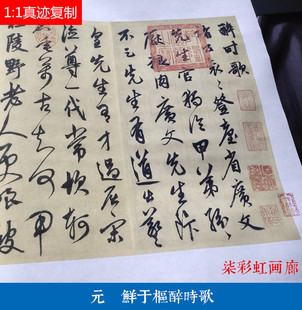 1:1真迹复制
醉時歌
諸公衮衮登臺省廣文
先生官獨冷甲第紛〻
厭粱肉廣文先生飯
不足先生有道出羲
皇先生有才過屈宋
德尊一代常坎軻
垂萬古知何用
陵野老人更嗤被
柒彩虹画廊
元 鮮于樞醉時歌